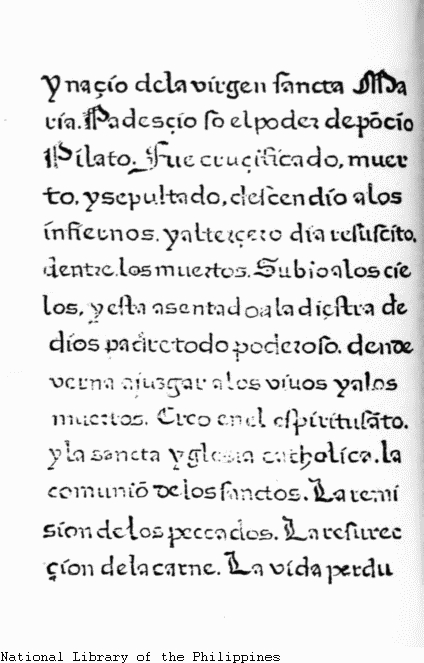 y naçio dela virgen sancta Ma
ria. Padesçio so el poder de põcio
Pilato. Fue cruçificado, muer
to. y sepultado, descendio a los
infiernos. y al terçero dia resuscito.
dentre los muertos. Subio a los cie
los, y esta asentado a la diestra de
dios padre todo poderoso. dende
verna a juzgar a los viuos y a los
muertos. Creo en el espiritusãto.
y la sancta yglesia catholica. la
comuniõ de los sanctos. La remi
sion de los peccados. La resurec
çion de la carne. La vida perdu
National Library of the Philippines